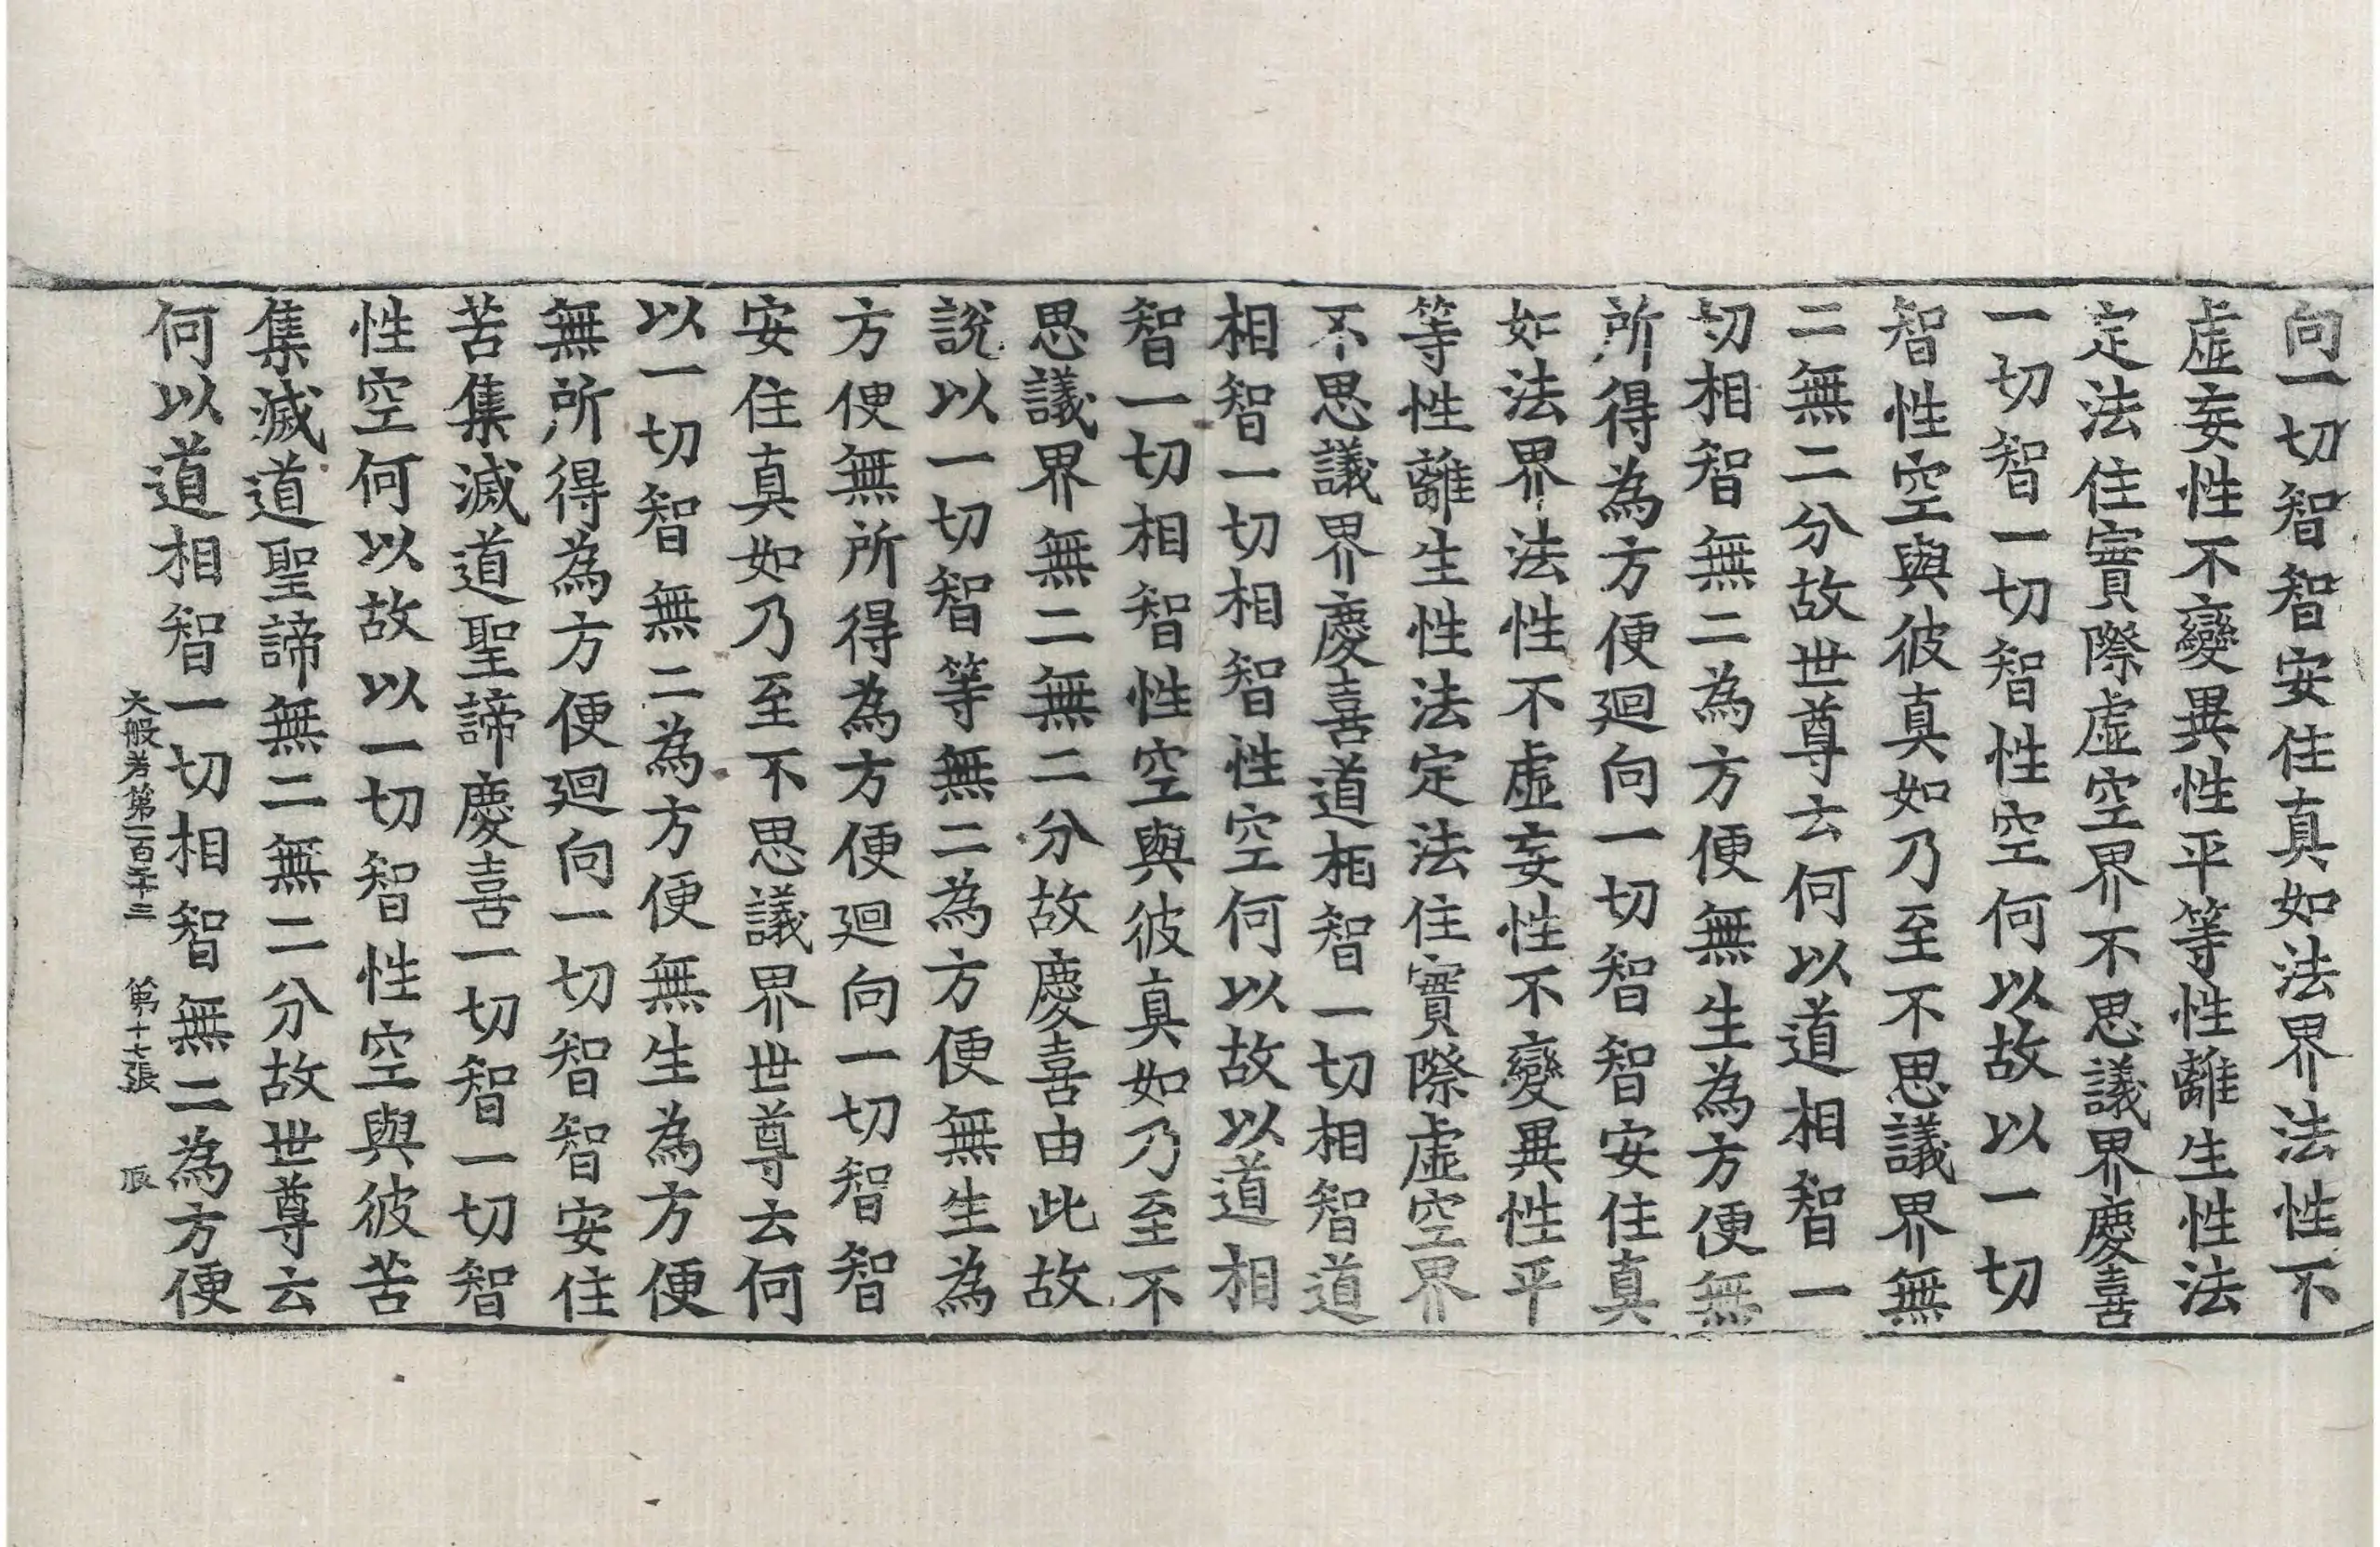 向一切智智安住真如法界法性不
虛妄性不變異性平等性離生性法
定法住實際虛空界不思議界慶喜
一切智一切智性空何以故以一切
智性空與彼真如乃至不思議界無
二無二分故世尊云何以道相智一
切相智無二為方便無生為方便無
所得為方便廻向一切智智安住真
如法界法性不虛妄性不變異性平
等性離生性法定法住實際虛空界
不思議界慶喜道相智一切相智道
相智一切相智性空何以故以道相
智一切相智性空與彼真如乃至不
思議界無二無二分故慶喜由此故
說以一切智等無二為方便無生為
方便無所得為方便廻向一切智智
安住真如乃至不思議界世尊云何
以一切智無二為方便無生為方便
無所得為方便廻向一切智智安住
苦集滅道聖諦慶喜一切智一切智
性空何以故以一切智性空與彼苦
集滅道聖諦無二無二分故世尊云
何以道相智一切相智無二為方便
大般若第一百二十三 第十七張 辰